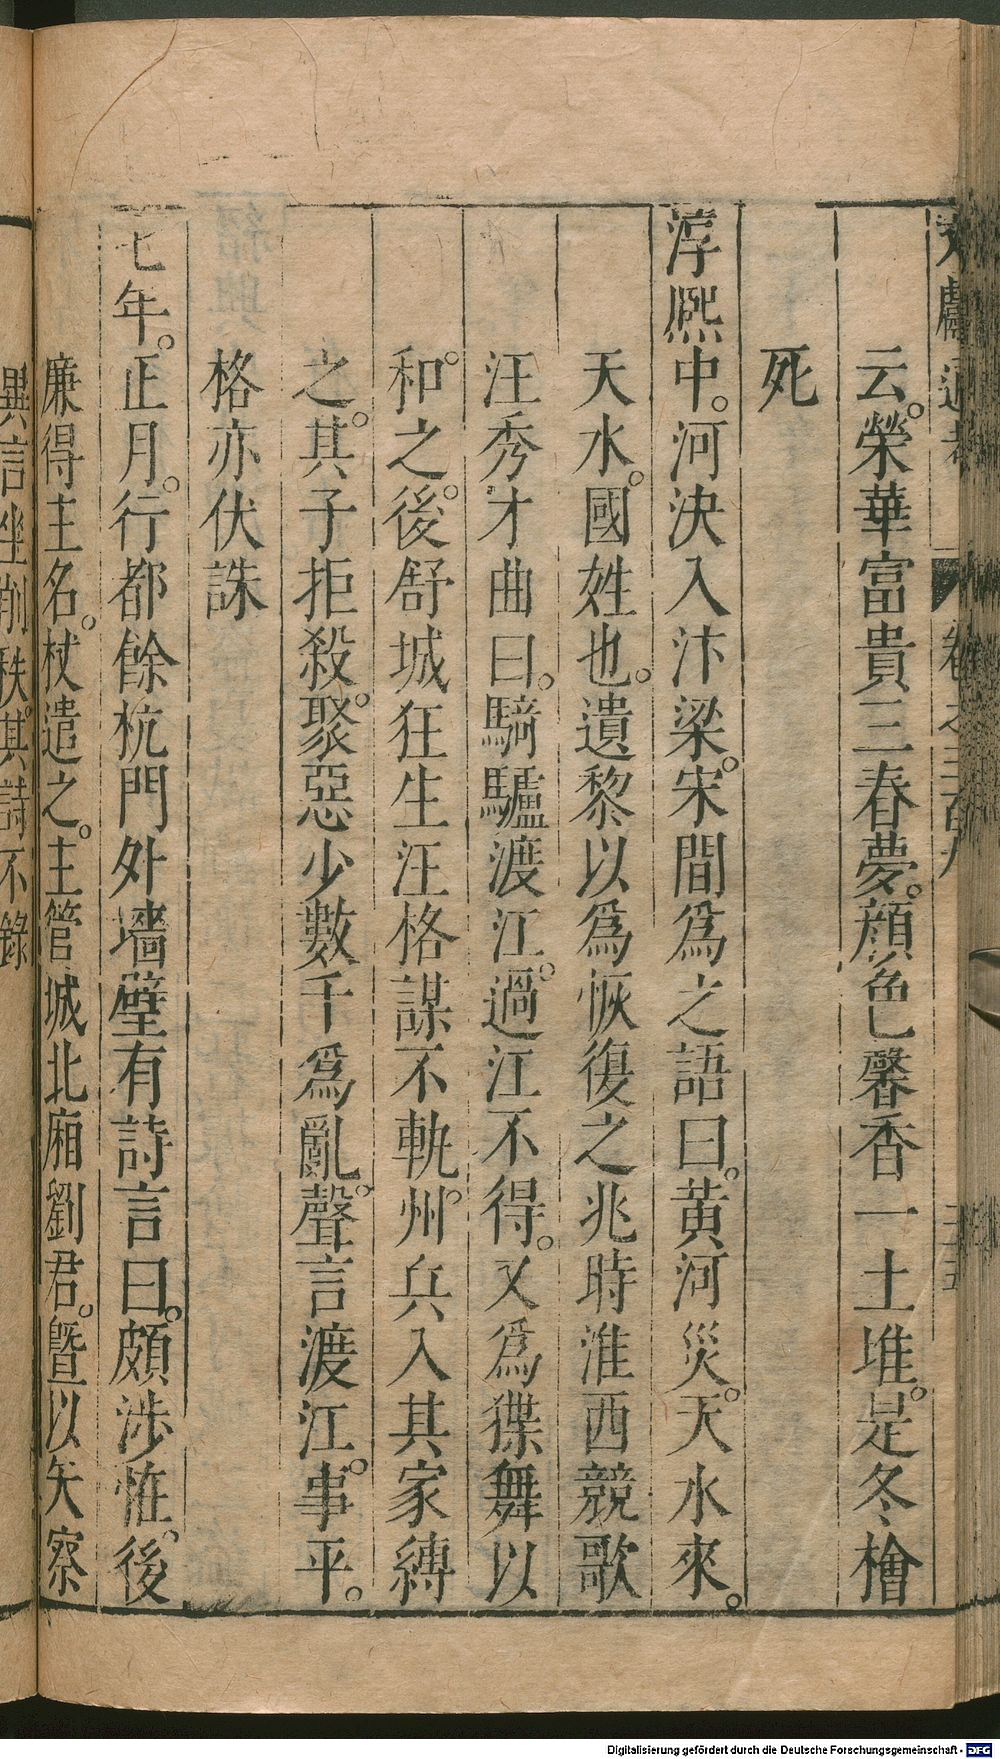 文獻通考 卷之三百九 三十五
云。榮華富貴三春夢。顔色馨香一土堆。是冬檜
死
淳熙中。河決入汴梁。宋間爲之語曰。黄河災。天水來。
天水。國姓也。遺黎以爲恢復之兆時淮西競歌
汪秀才曲曰。騎驢渡江。過江不得。又爲獈舞以
和。之。後舒城狂生汪格謀不軌。州兵入其家縛
之。其子拒殺。聚惡少數千爲亂。聲言渡江。事平。
格亦伏誅
七年。正月。行都餘杭門外墻壁有詩言曰。頗涉恠。後
廉得主名。杖遣之。主管城北廂劉君。曁以失察
異言坐削秩。其詩不錄
Digitalisierung gefördert durch die Deutsche Forschungsgemeinschaft - DFG